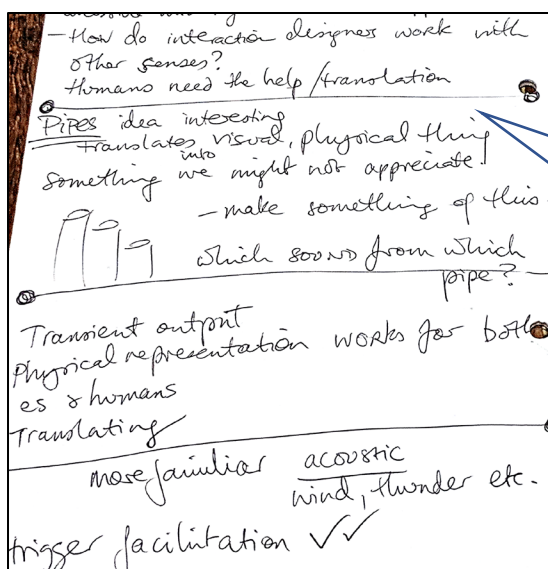 - How do interaction designers work with
other senses?
Humans need the help/translation
Pipes idea interesting
translates visual, physical thing
into
something we might not appreciate!
- make something of this
which sound from which
pipe?
Transient output
Physical representation works for both
es & humans
Translating
more familiar acoustic
wind, thunder etc.
trigger facilitation ✓✓